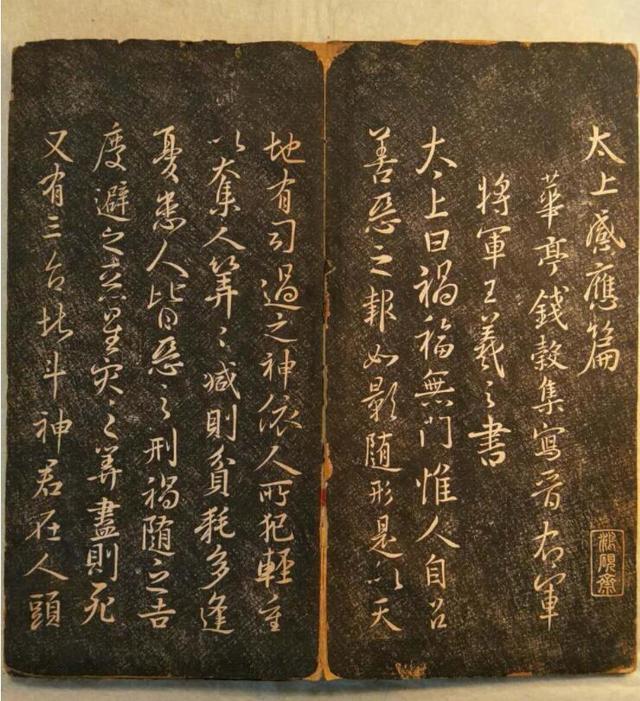 太上感應篇
華亭錢穀集寫晉右軍
將軍王羲之書
太上曰禍福無門惟人自召
善惡之報如影隨形是以天
地有司過之神依人所犯輕重
以奪人筭〻減則貧耗多逢
憂患人皆惡之刑禍隨之吉
慶避之惡星灾之筭盡則死
又有三台北斗神君在人頭